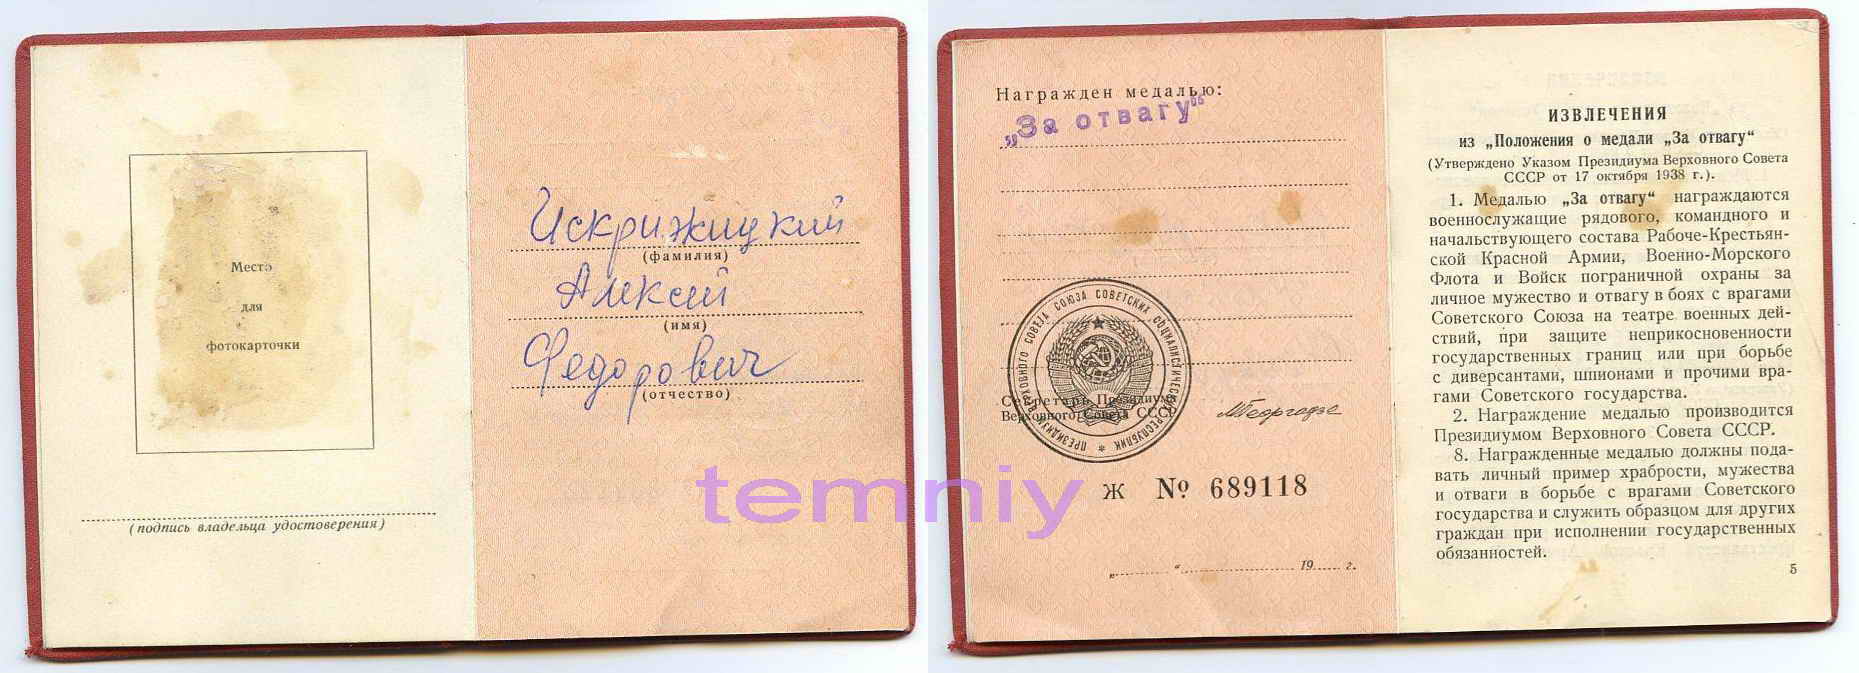 Место
для
фотокарточки
(подпись владельца удостоверения)
Искрижицкий
(фамилия)
Алексей
(имя)
Федорович
(отчество)
temniy
Награжден медалью:
„За отвагу“
ПРЕЗИДИУМ ВЕРХОВНОГО СОВЕТА СОЮЗА СОВЕТСКИХ СОЦИАЛИСТИЧЕСКИХ РЕСПУБЛИК *
Секретарь Президиума
Верховного Совета СССР
МГеоргадзе
Ж № 689118
„ “ 19 г.
ИЗВЛЕЧЕНИЯ
из „Положения о медали „За отвагу“
(Утверждено Указом Президиума Верховного Совета
СССР от 17 октября 1938 г.).
1. Медалью „За отвагу“ награждаются
военнослужащие рядового, командного и
начальствующего состава Рабоче-Крестьян-
ской Красной Армии, Военно-Морского
Флота и Войск пограничной охраны за
личное мужество и отвагу в боях с врагами
Советского Союза на театре военных дей-
ствий, при защите неприкосновенности
государственных границ или при борьбе
с диверсантами, шпионами и прочими вра-
гами Советского государства.
2. Награждение медалью производится
Президиумом Верховного Совета СССР.
8. Награжденные медалью должны пода-
вать личный пример храбрости, мужества
и отваги в борьбе с врагами Советского
государства и служить образцом для других
граждан при исполнении государственных
обязанностей.
5